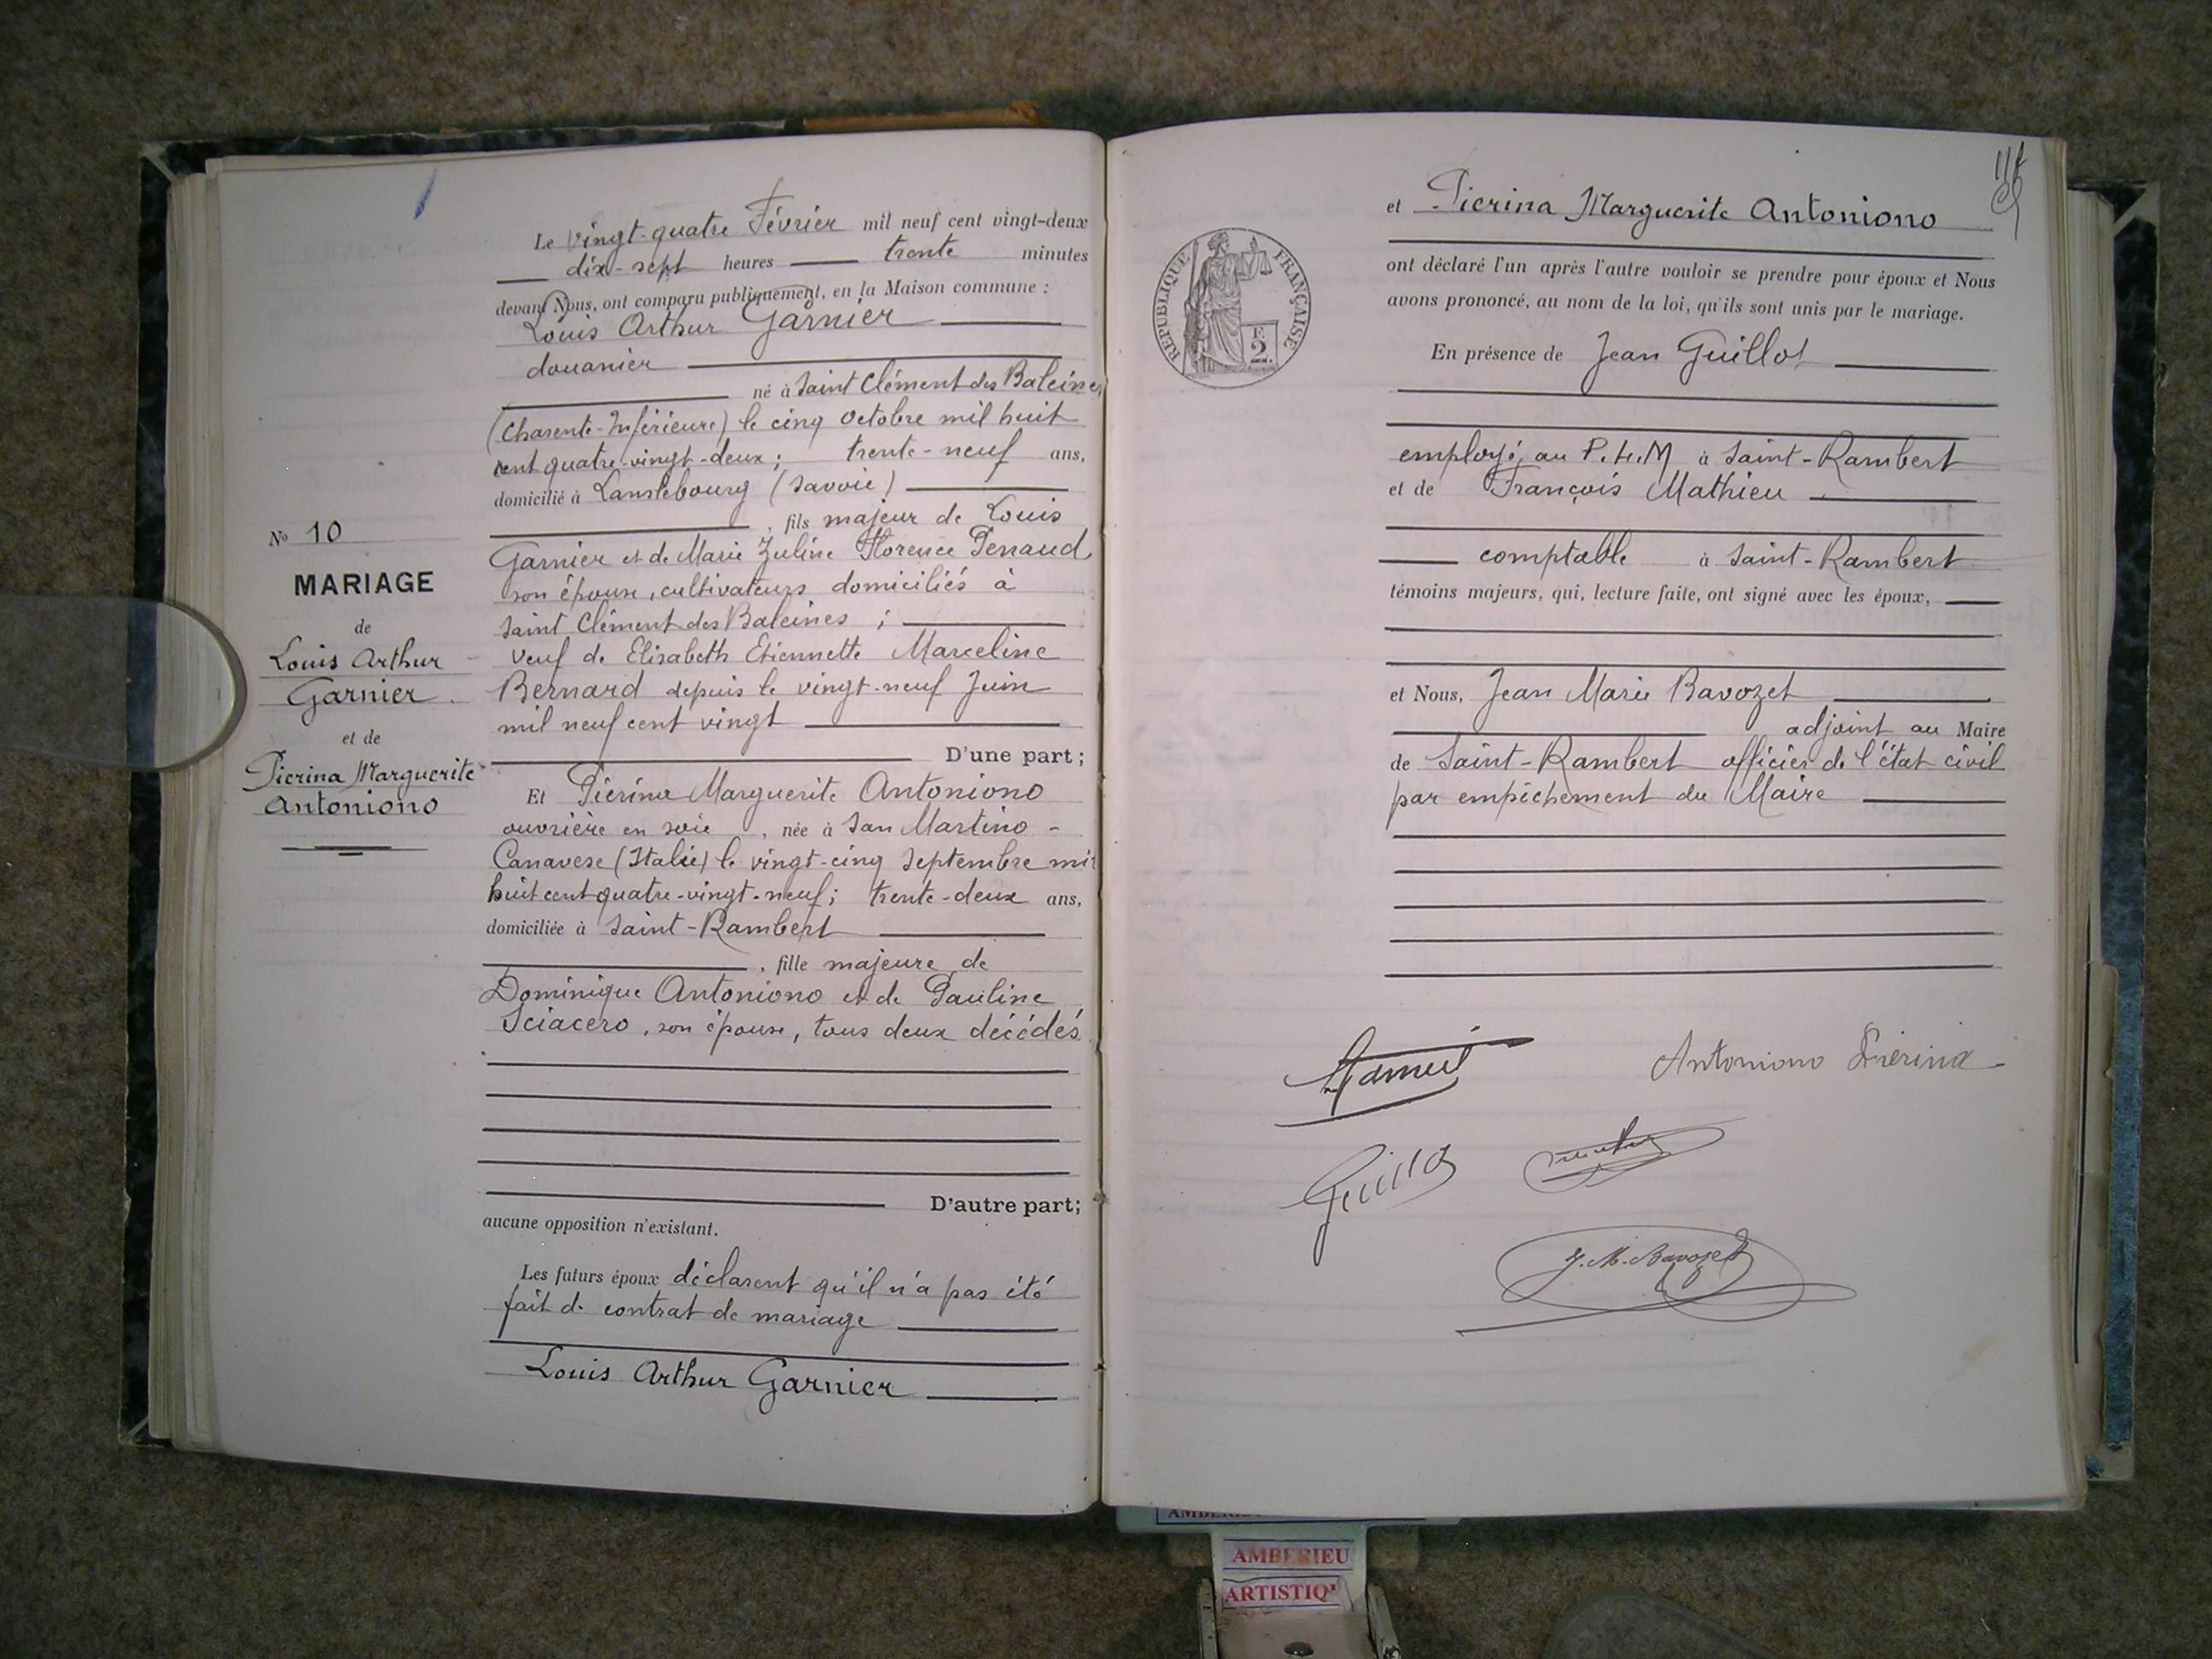 Le vingt-quatre Février mil neuf cent vingt-deux
dix-sept heures trente minutes
devant Nous, ont comparu publiquement, en la Maison commune :
Louis Arthur Garnier
douanier
né à Saint Clément des Baleines
(Charente-Inférieure) le cinq octobre mil huit
cent quatre-vingt-deux ; trente-neuf ans,
domicilié à Lanslebourg (Savoie)
, fils majeur de Louis
Garnier et de Marie Zuline Florence Penaud
son épouse, cultivateurs domiciliés à
Saint Clément des Baleines ;
veuf de Elisabeth Etiennette Marceline
Bernard depuis le vingt-neuf Juin
mil neuf cent vingt
D'une part ;
Nº 10
MARIAGE
de
Louis Arthur
Garnier
et de
Pierina Marguerite
Antoniono
Et Piérina Marguerite Antoniono
ouvrière en soie, née à San Martino-
Canavese (Italie) le vingt-cinq Septembre mil
huit cent quatre-vingt-neuf ; trente-deux ans,
domiciliée à Saint-Rambert
, fille majeure de
Dominique Antoniono et de Pauline
Sciacero, son épouse, tous deux décédés
D'autre part;
aucune opposition n'existant.
Les futurs époux déclarent qu'il n'a pas été
fait de contrat de mariage
Louis Arthur Garnier
et Pierina Marguerite Antoniono
ont déclaré l'un après l'autre vouloir se prendre pour époux et Nous
avons prononcé, au nom de la loi, qu'ils sont unis par le mariage.
RÉPUBLIQUE FRANÇAISE
2
En présence de Jean Guillot
employé au P.L.M à Saint-Rambert
et de François Mathieu
comptable à Saint-Rambert
témoins majeurs, qui, lecture faite, ont signé avec les époux,
et Nous, Jean Marie Bavozet
adjoint au Maire
de Saint-Rambert officier de l'état civil
par empêchement du Maire
Garnier
Antoniono Pierina
Guillot
J. M. Bavozet
AMBERIEU
ARTISTIQ